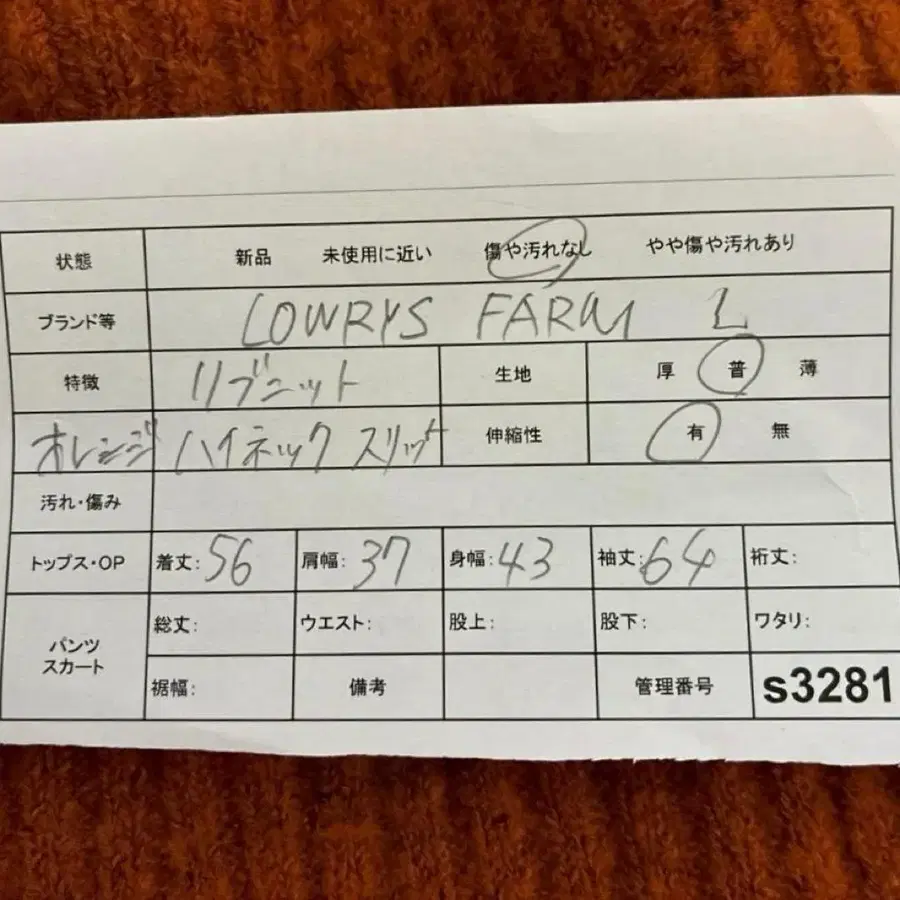 状態 新品 未使用に近い 傷や汚れなし やや傷や汚れあり
ブランド等 LOWRYS FARM L
特徴 リブニット 生地 厚 普 薄
オレンジ ハイネック スリット 伸縮性 有 無
汚れ・傷み
トップス・OP 着丈: 56 肩幅: 37 身幅: 43 袖丈: 64 裄丈:
パンツ スカート 総丈: ウエスト: 股上: 股下: ワタリ:
裾幅: 備考 管理番号 s3281